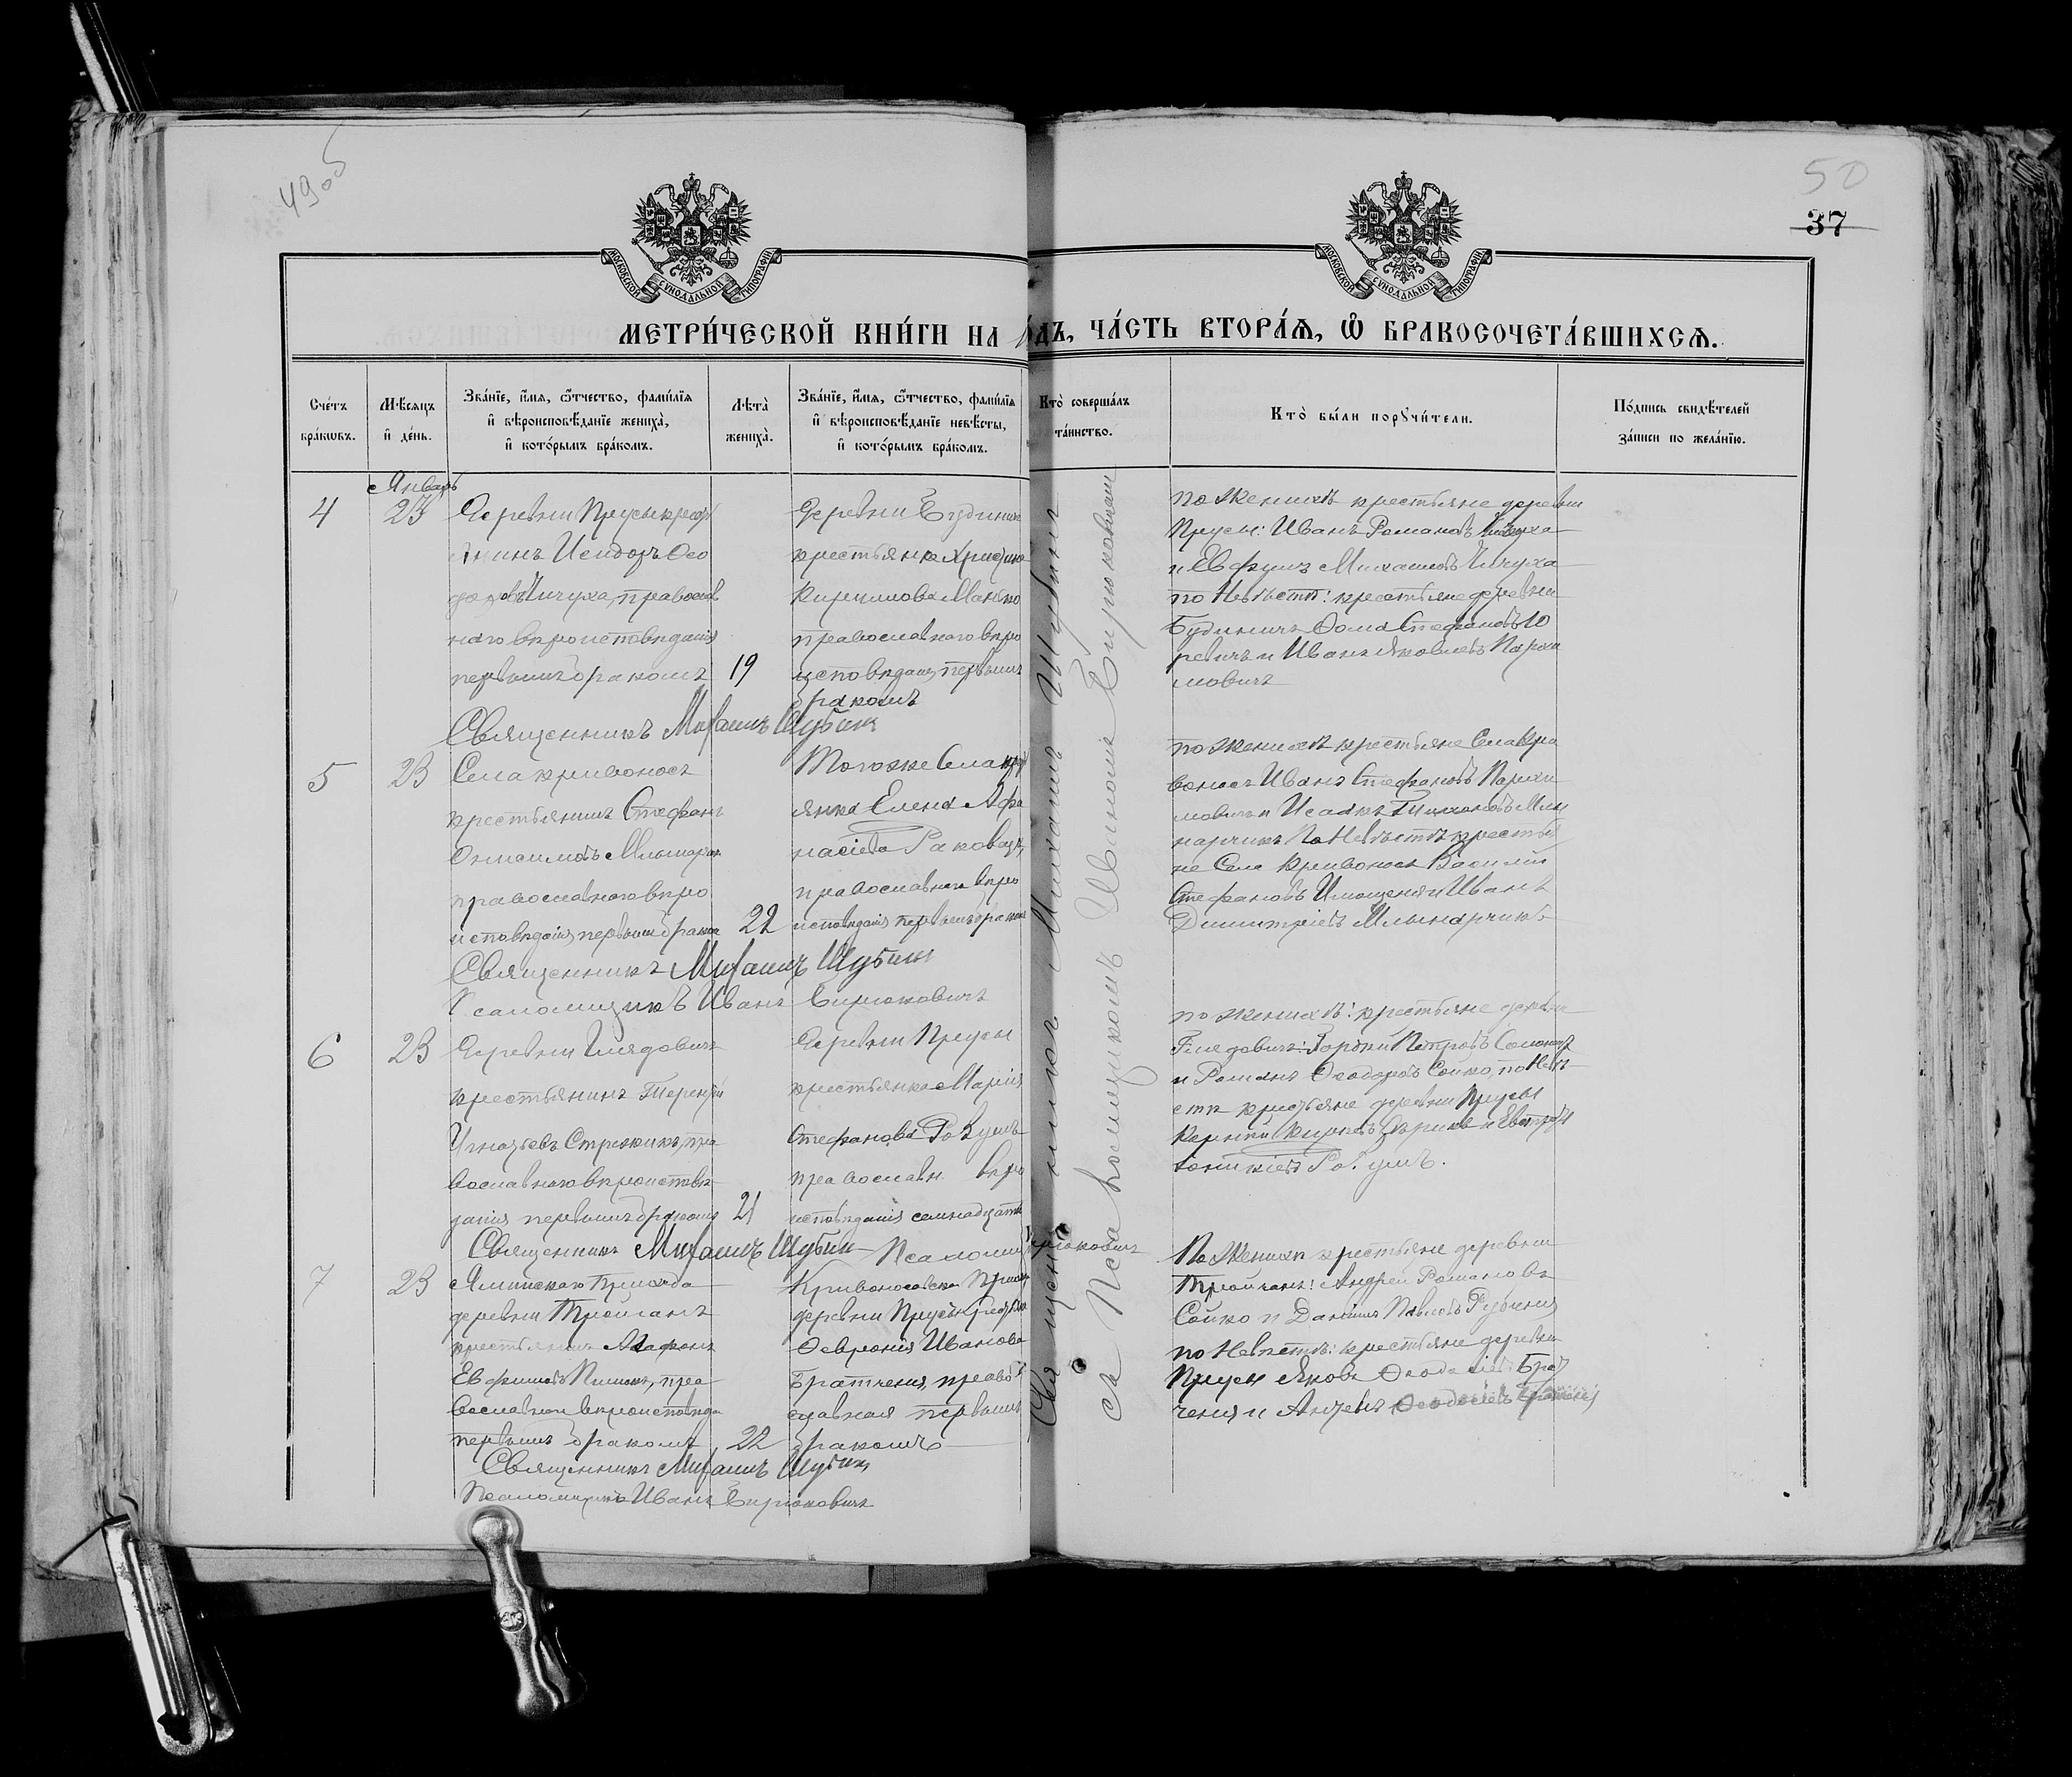 49об
50
37
МОСКОВСКОЙ СѴНОДАЛЬНОЙ ТИПОГРАФІИ
МОСКОВСКОЙ СѴНОДАЛЬНОЙ ТИПОГРАФІИ
МЕТРИ́ЧЕСКОЙ КНИ́ГИ НА
ДЪ, ЧА́СТЬ ВТОРА́Ѧ, Ѽ БРАКОСОЧЕТА́ВШИХСѦ.
Сче́тъ бра́кѡвъ.
Мѣсѧцъ и҆ де́нь.
Зва́нїе, и҆́мѧ, ѻ҆́тчество, фами́лїѧ и҆ вѣроисповѣ́данїе жениха̀, и҆ кото́рымъ бра́комъ.
Лѣта̀ жениха̀.
Зва́нїе, и҆́мѧ, ѻ҆́тчество, фами́лїѧ и҆ вѣроисповѣ́данїе невѣ́сты, и҆ кото́рымъ бра́комъ.
Кто̀ соверша́лъ та́инство.
Кто̀ бы́ли порꙋчи́тели.
По́дпись свидѣ́телей за́писи по жела́нїю.
Январь
4
23
Деревни Прусы крест
янинъ Исидоръ Ѳео
доровъ Чичуха, православ
наго вѣроисповѣданія
первымъ бракомъ
19
Деревни Будиничъ
крестьянка Христина
Кириллова Манько
православнаго вѣро
исповѣданія, первымъ
бракомъ
по женихѣ крестьяне деревни
Прусы: Иванъ Романовъ
и Евфимъ Михаиловъ Чичуха
по Невѣстѣ: крестьяне деревни
Будиничъ Ѳома Стефановъ Ю
ревичъ и Иванъ Яковлевъ Пархи
мовичъ
Священникъ Михаилъ Шубинъ
5
23
Села Кривоносъ
крестьянинъ Стефанъ
Млынарчик
православнаго вѣро
исповѣданія, первымъ браком
22
Тогоже Села кр
янка Елена Афа
насіева Раковецъ,
православнаго вѣро
исповѣданія первымъ бракомъ
по женихѣ крестьяне Села Кри
воносъ Иванъ Стефановъ Пархи
мовичъ и Исаакъ Тихановъ Млы
нарчикъ По Невѣстѣ крестья
не Села Кривоносъ Василій
Стефановъ и Иванъ
Димитріевъ Млынарчикъ
Священникъ Михаилъ Шубинъ
Псаломщикъ Иванъ Бирюковичъ
6
23
Деревни Глядовичъ
крестьянинъ Терентій
Игнатьевъ Стрижикъ, пра
вославнаго вѣроисповѣ
данія первымъ бракомъ
21
Деревни Прусы
крестьянка Марія
Стефанова
православн. вѣро
исповѣданія семнадцати
по женихѣ: крестьяне деревни
Глядовичъ: Гордѣй Петровъ
и Романъ Ѳеодоровъ Сойко, по Невѣ
стѣ крестьяне деревни Прусы
Священникъ Михаилъ Шубинъ Псаломщ
7
23
прихода
деревни Тройчанъ
крестьянинъ Агафонъ
Евфимовъ, пра
вославнаго вѣроисповѣда
первымъ бракомъ
22
Кривоносовскаго Прихода
деревни Прусы крестьян
Ѳевронія Иванова
Братченя, право
славная первымъ
бракомъ
По Женихѣ крестьяне деревни
Тройчанъ: Андрей Романовъ
Сойко и Даніилъ Павловъ
по Невѣстѣ: крестьяне деревни
Прусы Яковъ Брат
ченя и
Священникъ Михаилъ Шубинъ
Псаломщикъ Иванъ Бирюковичъ
Священникъ Михаилъ Шубинъ
съ Псаломщикомъ Иваномъ Бирюковичемъ